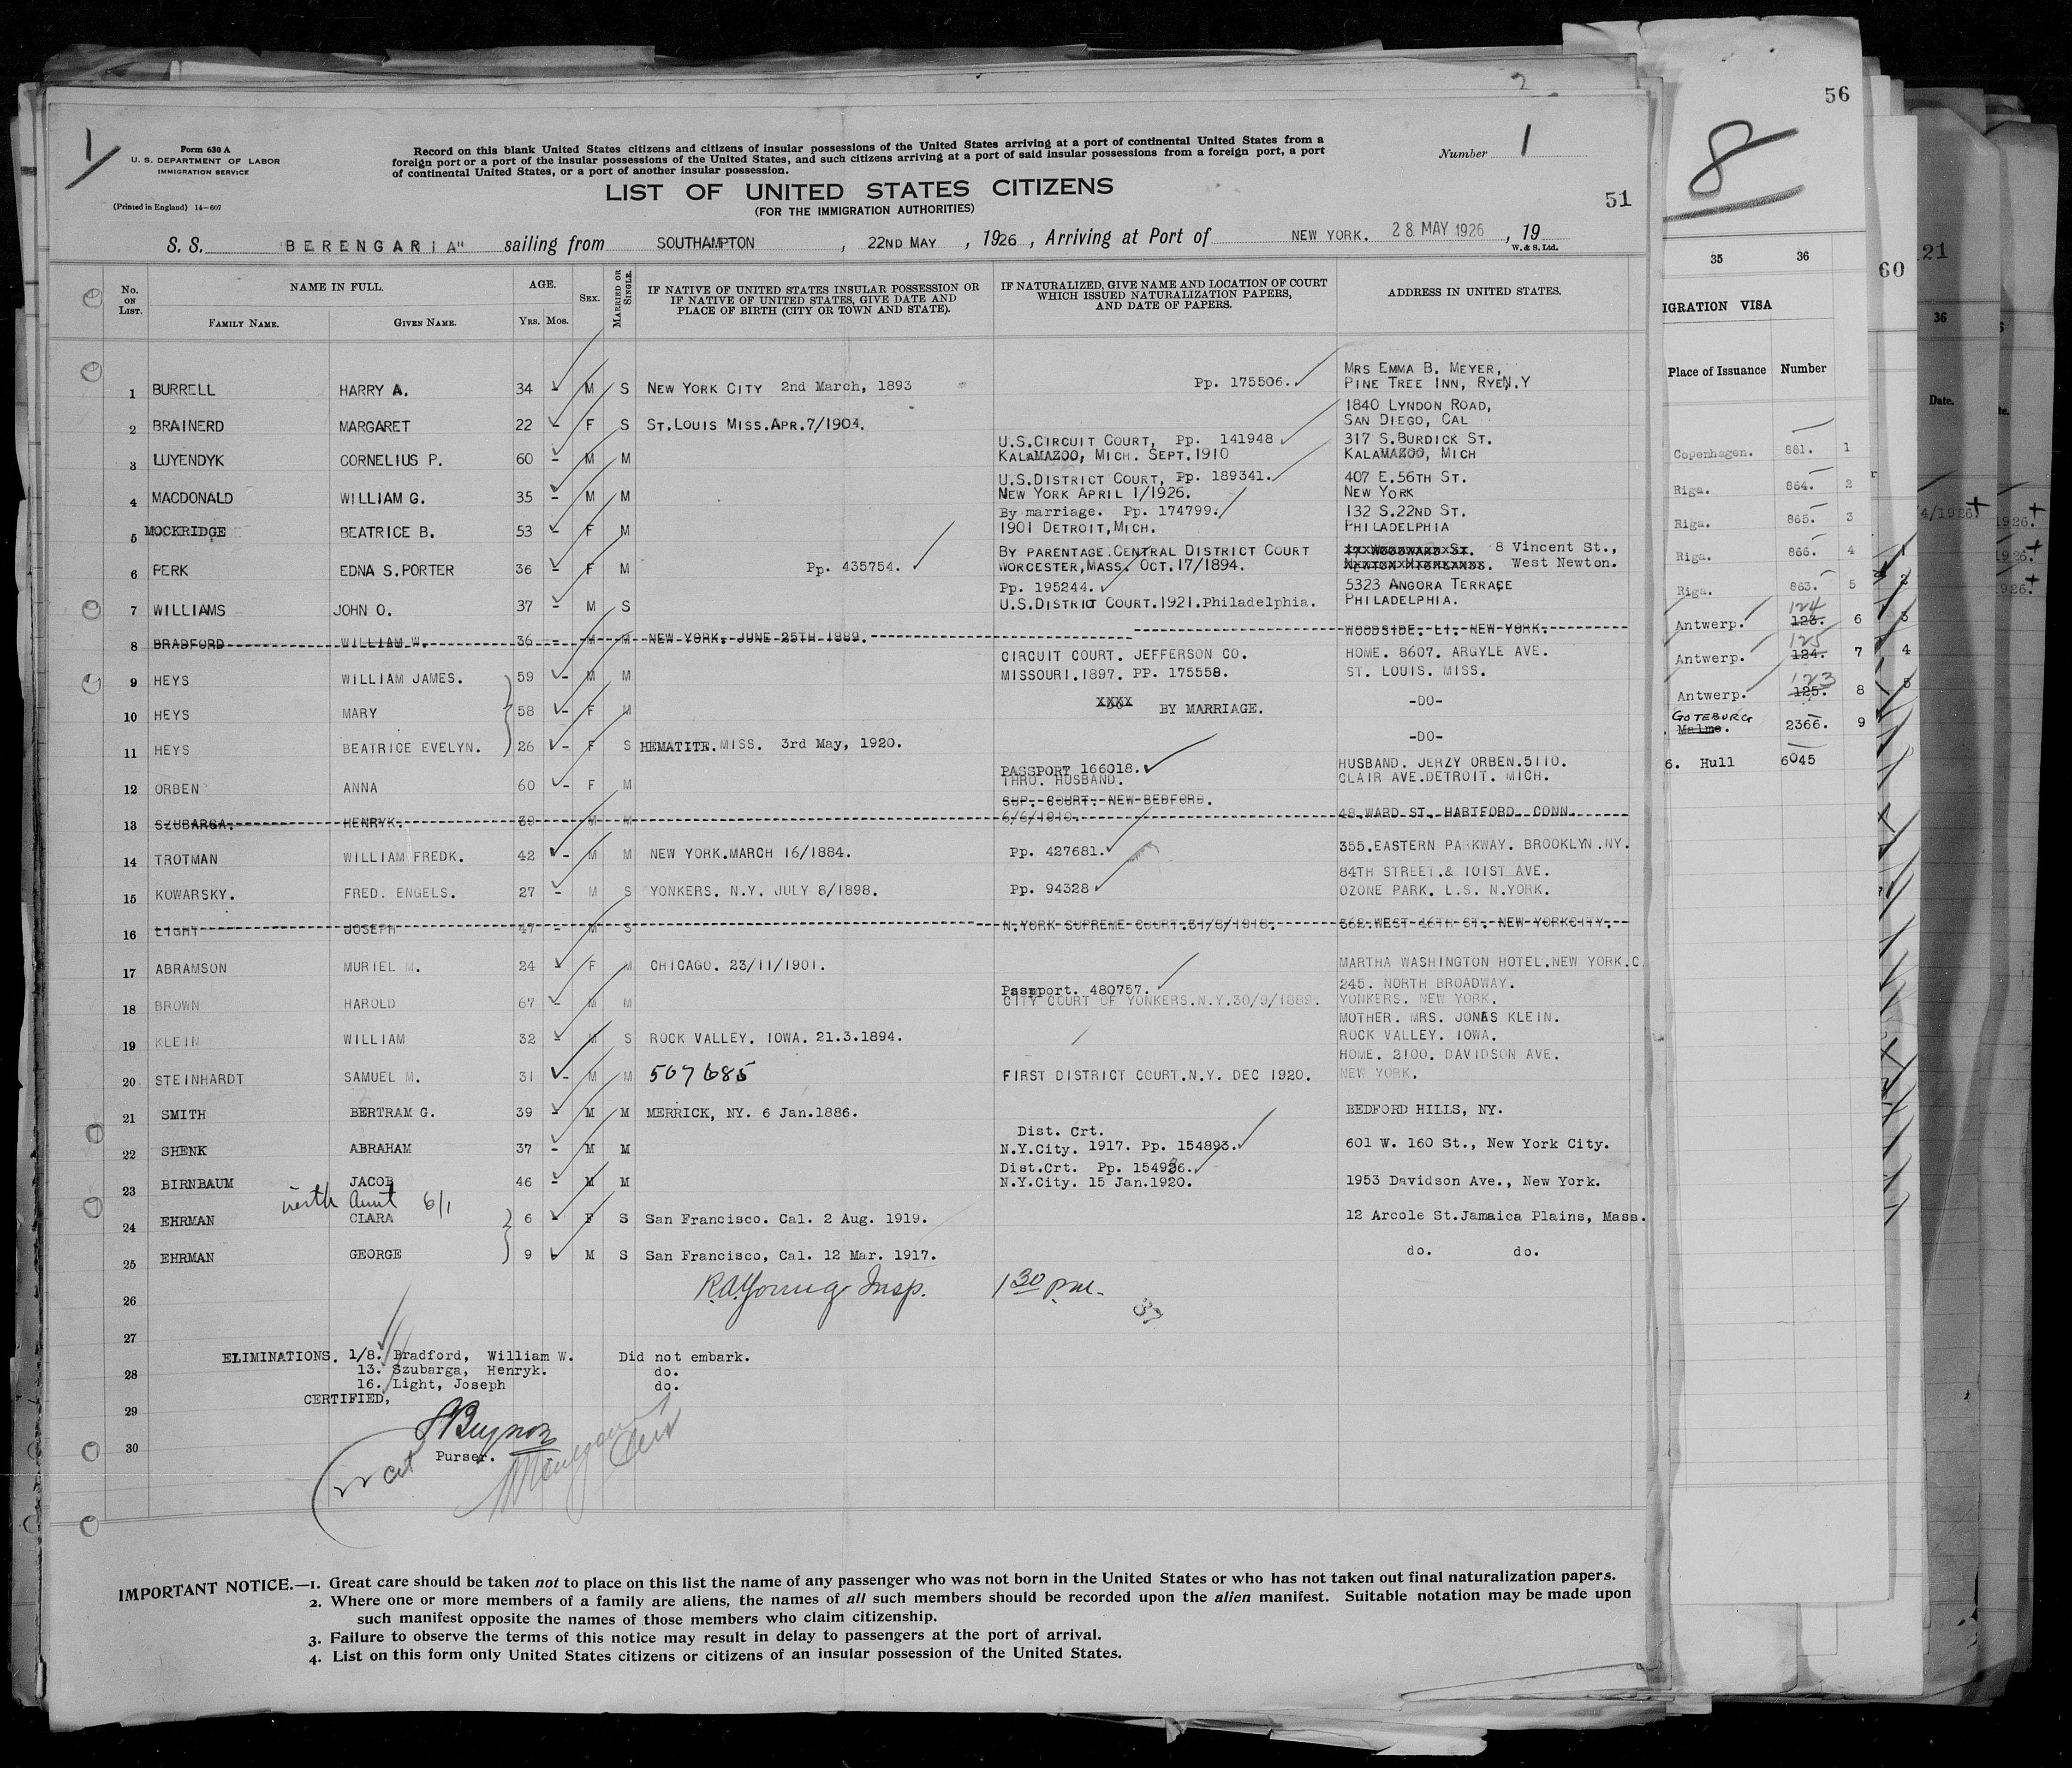 2
56
8
1
Form 630 A
U. S. DEPARTMENT OF LABOR
IMMIGRATION SERVICE
(Printed in England) 14—607
Record on this blank United States citizens and citizens of insular possessions of the United States arriving at a port of continental United States from a
foreign port or a port of the insular possessions of the United States, and such citizens arriving at a port of said insular possessions from a foreign port, a port
of continental United States, or a port of another insular possession.
LIST OF UNITED STATES CITIZENS
(FOR THE IMMIGRATION AUTHORITIES)
Number 1
51
S. S. "BERENGARIA" sailing from SOUTHAMPTON, 22ND MAY, 1926, Arriving at Port of NEW YORK. 28 MAY 1926, 19
W. & S. Ltd.
No. ON LIST.
NAME IN FULL.
FAMILY NAME. GIVEN NAME.
AGE.
YRS. MOS.
SEX.
MARRIED OR SINGLE.
IF NATIVE OF UNITED STATES INSULAR POSSESSION OR
IF NATIVE OF UNITED STATES, GIVE DATE AND
PLACE OF BIRTH (CITY OR TOWN AND STATE).
IF NATURALIZED, GIVE NAME AND LOCATION OF COURT
WHICH ISSUED NATURALIZATION PAPERS,
AND DATE OF PAPERS.
ADDRESS IN UNITED STATES.
MRS EMMA B. MEYER,
1 BURRELL HARRY A. 34 - M S NEW YORK CITY 2nd March, 1893 Pp. 175506. PINE TREE INN, RYE, N.Y
1840 LYNDON ROAD,
2 BRAINERD MARGARET 22 - F S ST. LOUIS MISS. APR. 7/1904. SAN DIEGO, CAL
U.S. CIRCUIT COURT, Pp. 141948 317 S. BURDICK ST.
3 LUYENDYK CORNELIUS P. 60 - M M KALAMAZOO, MICH. SEPT. 1910 KALAMAZOO, MICH
U.S. DISTRICT COURT, Pp. 189341. 407 E. 56TH ST.
4 MACDONALD WILLIAM G. 35 - M M NEW YORK APRIL 1/1926. NEW YORK
By marriage. Pp. 174799. 132 S. 22ND ST.
5 MOCKRIDGE BEATRICE B. 53 - F M 1901 DETROIT, MICH. PHILADELPHIA
BY PARENTAGE. CENTRAL DISTRICT COURT 8 Vincent St.,
6 PERK EDNA S. PORTER 36 - F M Pp. 435754. WORCESTER, MASS. OCT. 17/1894. West Newton.
Pp. 195244. 5323 ANGORA TERRACE
7 WILLIAMS JOHN O. 37 - M S U.S. DISTRICT COURT. 1921. Philadelphia. PHILADELPHIA.
8 BRADFORD WILLIAM W. 36 - M M NEW YORK. JUNE 25TH 1889. WOODSIDE. LI. NEW YORK.
CIRCUIT COURT. JEFFERSON CO. HOME. 8607. ARGYLE AVE.
9 HEYS WILLIAM JAMES. 59 - M M MISSOURI. 1897. PP. 175558. ST. LOUIS. MISS.
10 HEYS MARY 58 - F M XXXX BY MARRIAGE. -DO-
11 HEYS BEATRICE EVELYN. 26 - F S HEMATITE. MISS. 3rd May, 1920. -DO-
PASSPORT 166018. HUSBAND. JERZY ORBEN. 5110.
12 ORBEN ANNA 60 - F M THRO. HUSBAND. CLAIR AVE. DETROIT. MICH.
SUP. COURT. NEW BEDFORD.
13 SZUBARGA. HENRYK. 39 M M 6/6/1910. 48. WARD ST. HARTFORD. CONN.
14 TROTMAN WILLIAM FREDK. 42 - M M NEW YORK. MARCH 16/1884. Pp. 427681. 355. EASTERN PARKWAY. BROOKLYN. NY.
84TH STREET. & 101ST AVE.
15 KOWARSKY. FRED. ENGELS. 27 - M S YONKERS. N.Y. JULY 8/1898. Pp. 94328 OZONE PARK. L.S. N.YORK.
16 LIGHT JOSEPH 47 - M S N.YORK SUPREME COURT. 31/8/1918. 362. WEST 46TH ST. NEW YORKCITY.
17 ABRAMSON MURIEL M. 24 - F M CHICAGO. 23/11/1901. MARTHA WASHINGTON HOTEL. NEW YORK. C
Passport. 480757. 245. NORTH BROADWAY.
18 BROWN HAROLD 67 - M M CITY COURT OF YONKERS. N.Y. 30/9/1889. YONKERS. NEW YORK.
MOTHER. MRS. JONAS KLEIN.
19 KLEIN WILLIAM 32 - M S ROCK VALLEY. IOWA. 21.3.1894. ROCK VALLEY. IOWA.
HOME. 2100. DAVIDSON AVE.
20 STEINHARDT SAMUEL M. 31 - M M 507685 FIRST DISTRICT COURT. N.Y. DEC 1920. NEW YORK.
21 SMITH BERTRAM G. 39 - M M MERRICK, NY. 6 Jan. 1886. BEDFORD HILLS, NY.
Dist. Crt.
22 SHENK ABRAHAM 37 - M M N.Y.City. 1917. Pp. 154893. 601 W. 160 St., New York City.
Dist.Crt. Pp. 154926.
23 BIRNBAUM JACOB 46 - M M N.Y.City. 15 Jan.1920. 1953 Davidson Ave., New York.
with Aunt 6/1
24 EHRMAN CLARA 6 - F S San Francisco. Cal. 2 Aug. 1919. 12 Arcole St. Jamaica Plains, Mass.
25 EHRMAN GEORGE 9 M S San Francisco, Cal. 12 Mar. 1917. do. do.
R.A. Young Insp. 1 30 pm.
26
27
ELIMINATIONS. 1/8. Bradford, William W. Did not embark.
28 13. Szubarga, Henryk. do.
16. Light, Joseph do.
CERTIFIED,
29
30
Purser.
IMPORTANT NOTICE.—1. Great care should be taken not to place on this list the name of any passenger who was not born in the United States or who has not taken out final naturalization papers.
2. Where one or more members of a family are aliens, the names of all such members should be recorded upon the alien manifest. Suitable notation may be made upon
such manifest opposite the names of those members who claim citizenship.
3. Failure to observe the terms of this notice may result in delay to passengers at the port of arrival.
4. List on this form only United States citizens or citizens of an insular possession of the United States.
35 36
IGRATION VISA
Place of Issuance Number
Copenhagen. 881. 1
Riga. 864. 2
Riga. 865. 3
Riga. 866. 4
Riga. 863. 5
124
Antwerp. 123. 6
125
Antwerp. 124. 7
123
Antwerp. 125. 8
GOTEBURG
Malmo. 2366. 9
6. Hull 6045
60
1
2
3
4
5
21
36
Date.
4/1926
1926.
1926.
1926.